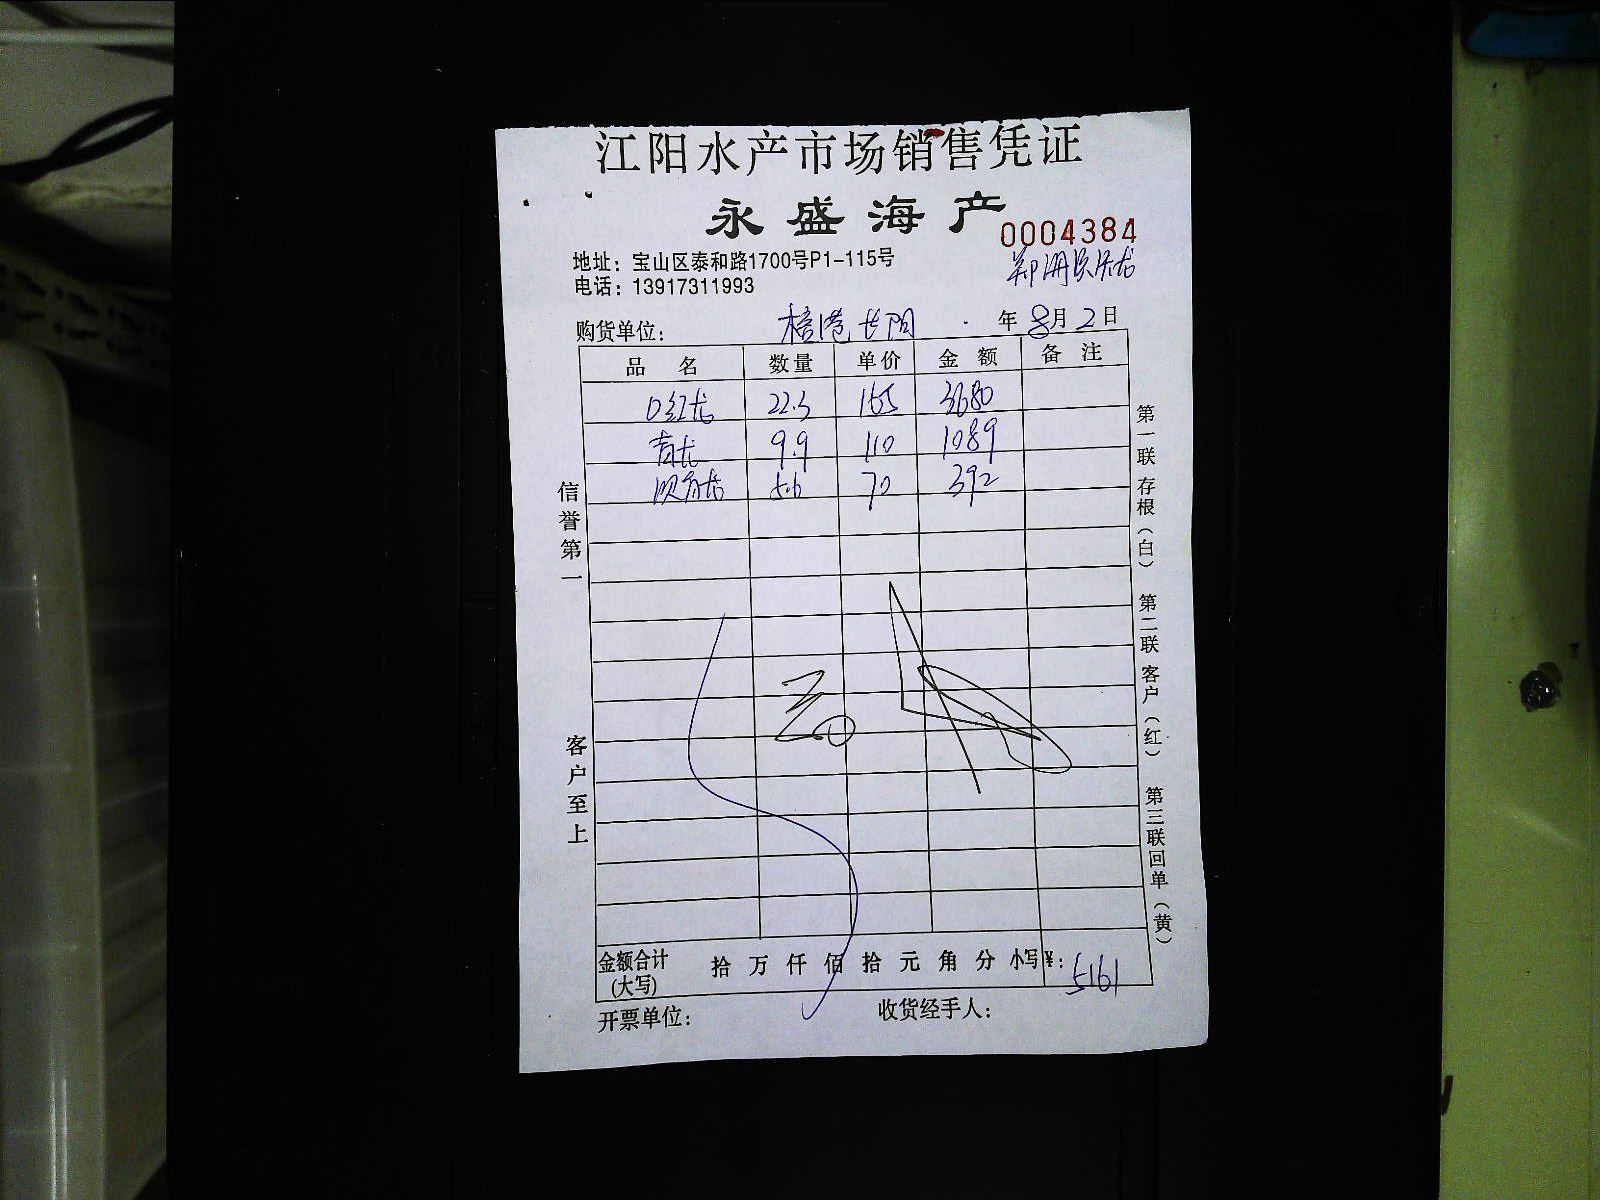 江阳水产市场销售凭证
永盛海产
0004384
地址：宝山区泰和路1700号P1-115号
电话：13917311993
购货单位： 年 8月 2日
品 名 数量 单价 金额 备注
口红龙 22.3 165 3680
青龙 9.9 110 1089
5.6 70 392
信誉第一
客户至上
第一联 存根（白） 第二联 客户（红） 第三联 回单（黄）
金额合计 拾 万 仟 佰 拾 元 角 分 小写¥： 5161
(大写)
开票单位： 收货经手人：